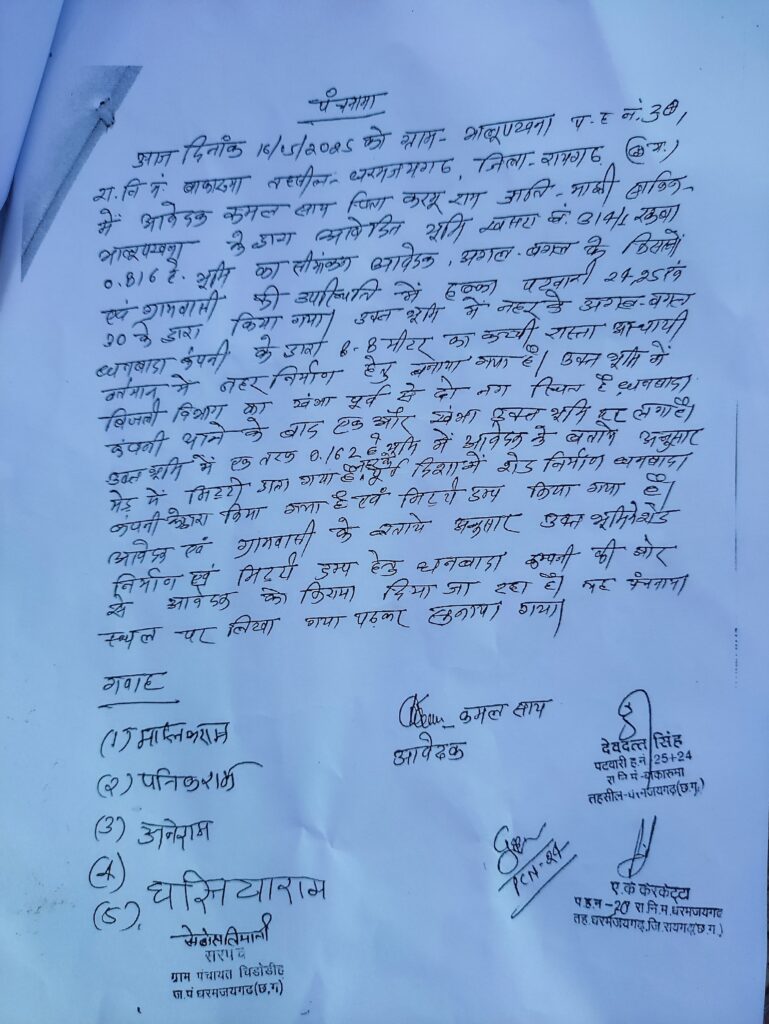 पंचनामा
आज दिनांक 16/5/2025 को ग्राम- भालूपखना प.ह नं. 30,
रा.नि.मं. बाकारूमा तहसील- धरमजयगढ, जिला- रायगढ (छ.ग.)
में आवेदक कमल साय पिता करमू राम जाति- माझी साकिन-
भालूपखना के द्वारा आवेदित भूमि खसरा नं. 314/1 रकबा
0.816 हे. भूमि का सीमांकन आवेदक, अगल-बगल के किसानों
एवं ग्रामवासी की उपस्थिति में हल्का पटवारी 24,25 एवं
20 के द्वारा किया गया। उक्त भूमि में नहर के अगल-बगल
धनबाडा कंपनी के द्वारा 6-8 मीटर का कच्ची रास्ता अस्थायी
वर्तमान में नहर निर्माण हेतु बनाया गया है। उक्त भूमि में
बिजली विभाग का खंभा पूर्व से दो नग स्थित है, धनबाडा
कंपनी आने के बाद एक और खंभा उक्त भूमि पर लगा है।
उक्त भूमि में एक तरफ 0.162 हे. भूमि में आवेदक के बताये अनुसार
मेड़ में मिट्टी डाला गया है, पूर्व दिशा में शेड निर्माण धनबाडा
कंपनी के द्वारा किया गया है एवं मिट्टी डम्प किया गया है।
आवेदक एवं ग्रामवासी के बताये अनुसार उक्त भूमि में शेड
निर्माण एवं मिट्टी डम्प हेतु धनबाडा कम्पनी की ओर
से आवेदक को किराया दिया जा रहा है। यह पंचनामा
स्थल पर लिखा गया पढ़कर सुनाया गया।
गवाह
(1) मालिकराम
(2) पनिकराम
(3) अनेराम
(4)
घसियाराम
(5)
सरपंच
ग्राम पंचायत चिडोडीह
ज.पं धरमजयगढ (छ.ग)
कमल साय
आवेदक
देवदत्त सिंह
पटवारी ह.नं. 25+24
रा नि मं-बाकारूमा
तहसील-धरमजयगढ़(छ.ग.)
PCN-24
ए.के केरकेट्टा
प.ह.न-20 रा नि.म.धरमजयगढ
तह.धरमजयगढ,जि.रायगढ़(छ.ग.)